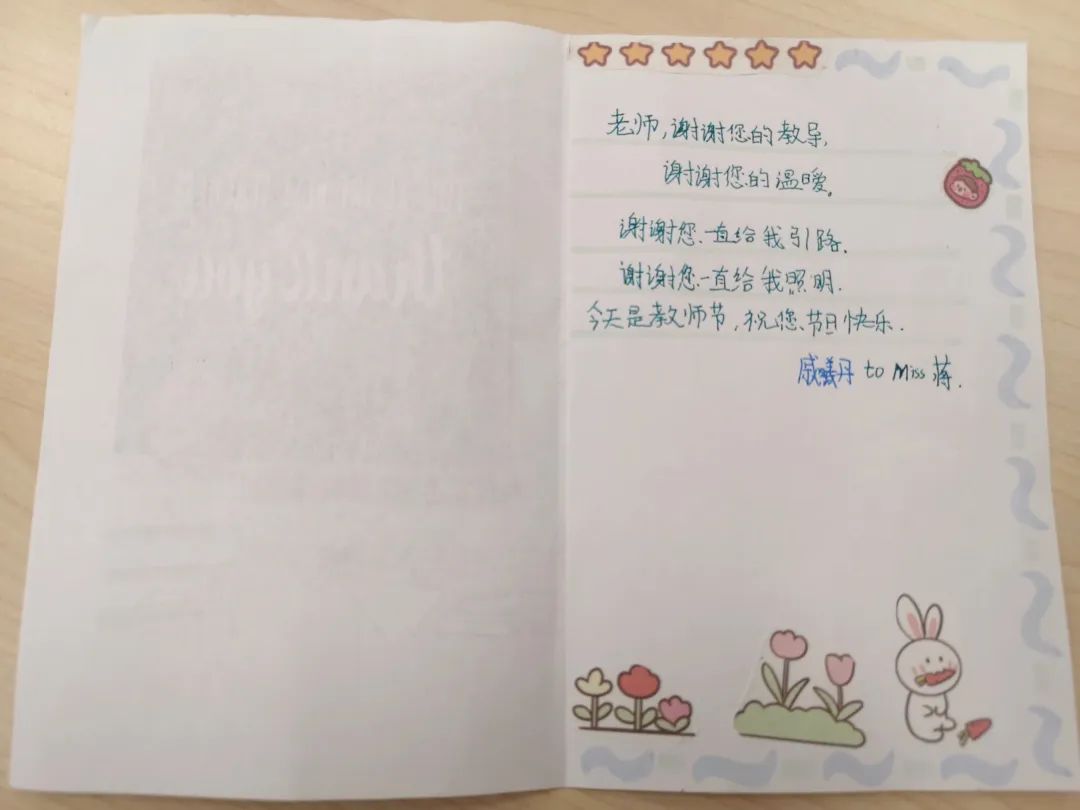 老师,谢谢您的教导,
谢谢您的温暖。
谢谢您一直给我引路.
谢谢您一直给我照明.
今天是教师节,祝您节日快乐.
戚曦丹 to Miss 蒋.